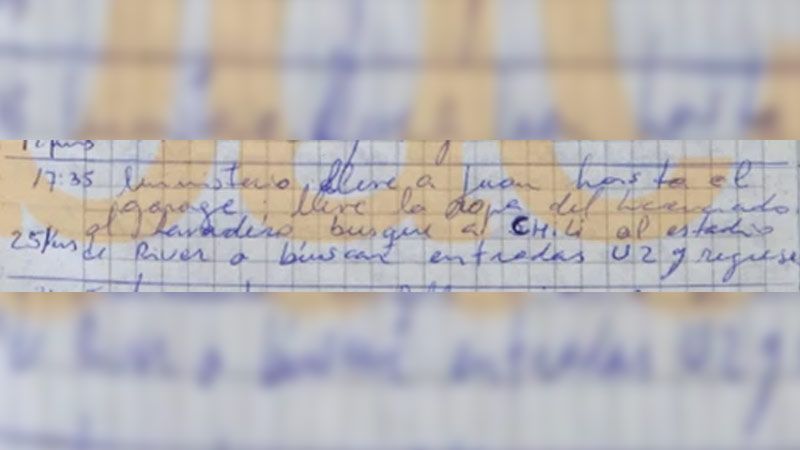 17:35 Ministerio lleve a Juan hasta el
garage. lleve la ropa del licenciado
al lavadero busque a CHILi al estadio
25 Kms de River a buscar entradas U2 y regrese